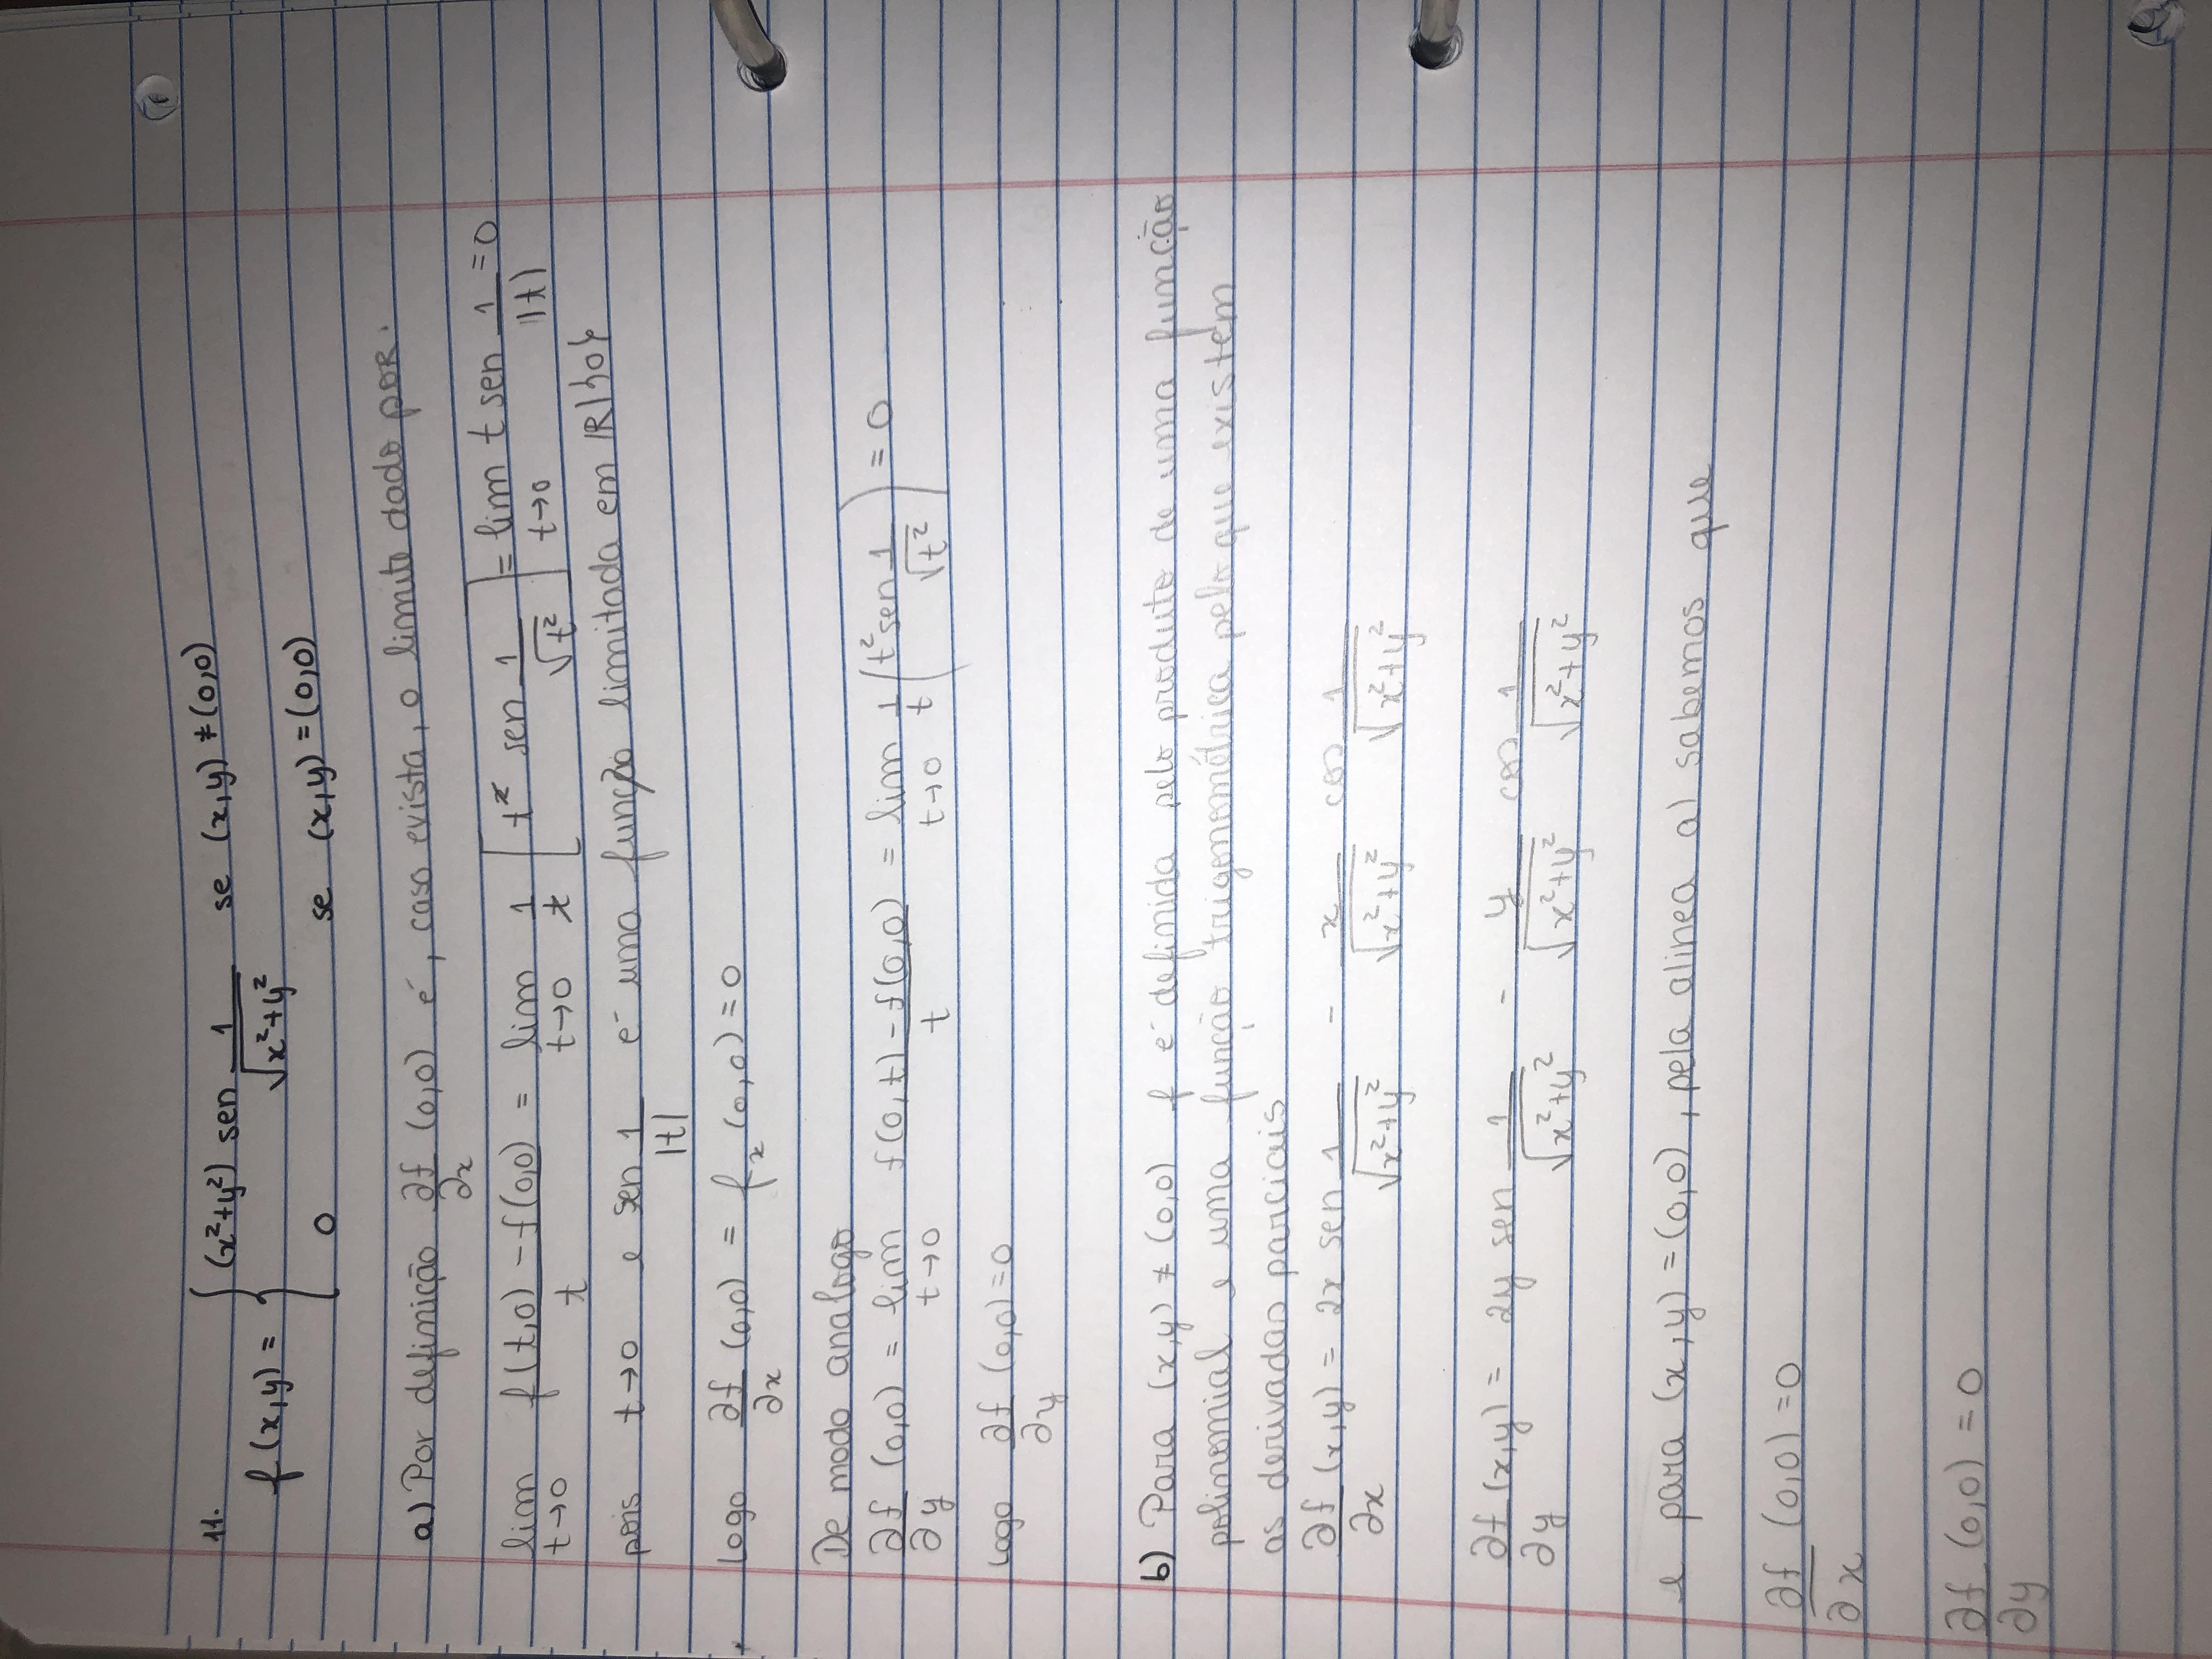 11.
f(x,y) = { (x²+y²) sen 1/√(x²+y²) se (x,y) ≠ (0,0)
0 se (x,y) = (0,0)
a) Por definição ∂f/∂x (0,0) é, caso exista, o limite dado por.
lim t→0 f(t,0) - f(0,0) / t = lim t→0 1/t [t² sen 1/√t²] = lim t→0 t sen 1/|t| = 0
pois t→0 e sen 1/|t| é uma função limitada em ℝ\{0}
Logo ∂f/∂x (0,0) = f_x (0,0) = 0
De modo analogo
∂f/∂y (0,0) = lim t→0 f(0,t) - f(0,0) / t = lim t→0 1/t (t² sen 1/√t²) = 0
Logo ∂f/∂y (0,0) = 0
b) Para (x,y) ≠ (0,0) f é definida pelo produto de uma função
polinomial e uma função trigonométrica pelo que existem
as derivadas parciais
∂f/∂x (x,y) = 2x sen 1/√(x²+y²) - x/√(x²+y²) cos 1/√(x²+y²)
∂f/∂y (x,y) = 2y sen 1/√(x²+y²) - y/√(x²+y²) cos 1/√(x²+y²)
e para (x,y) = (0,0), pela alinea a) sabemos que
∂f/∂x (0,0) = 0
∂f/∂y (0,0) = 0